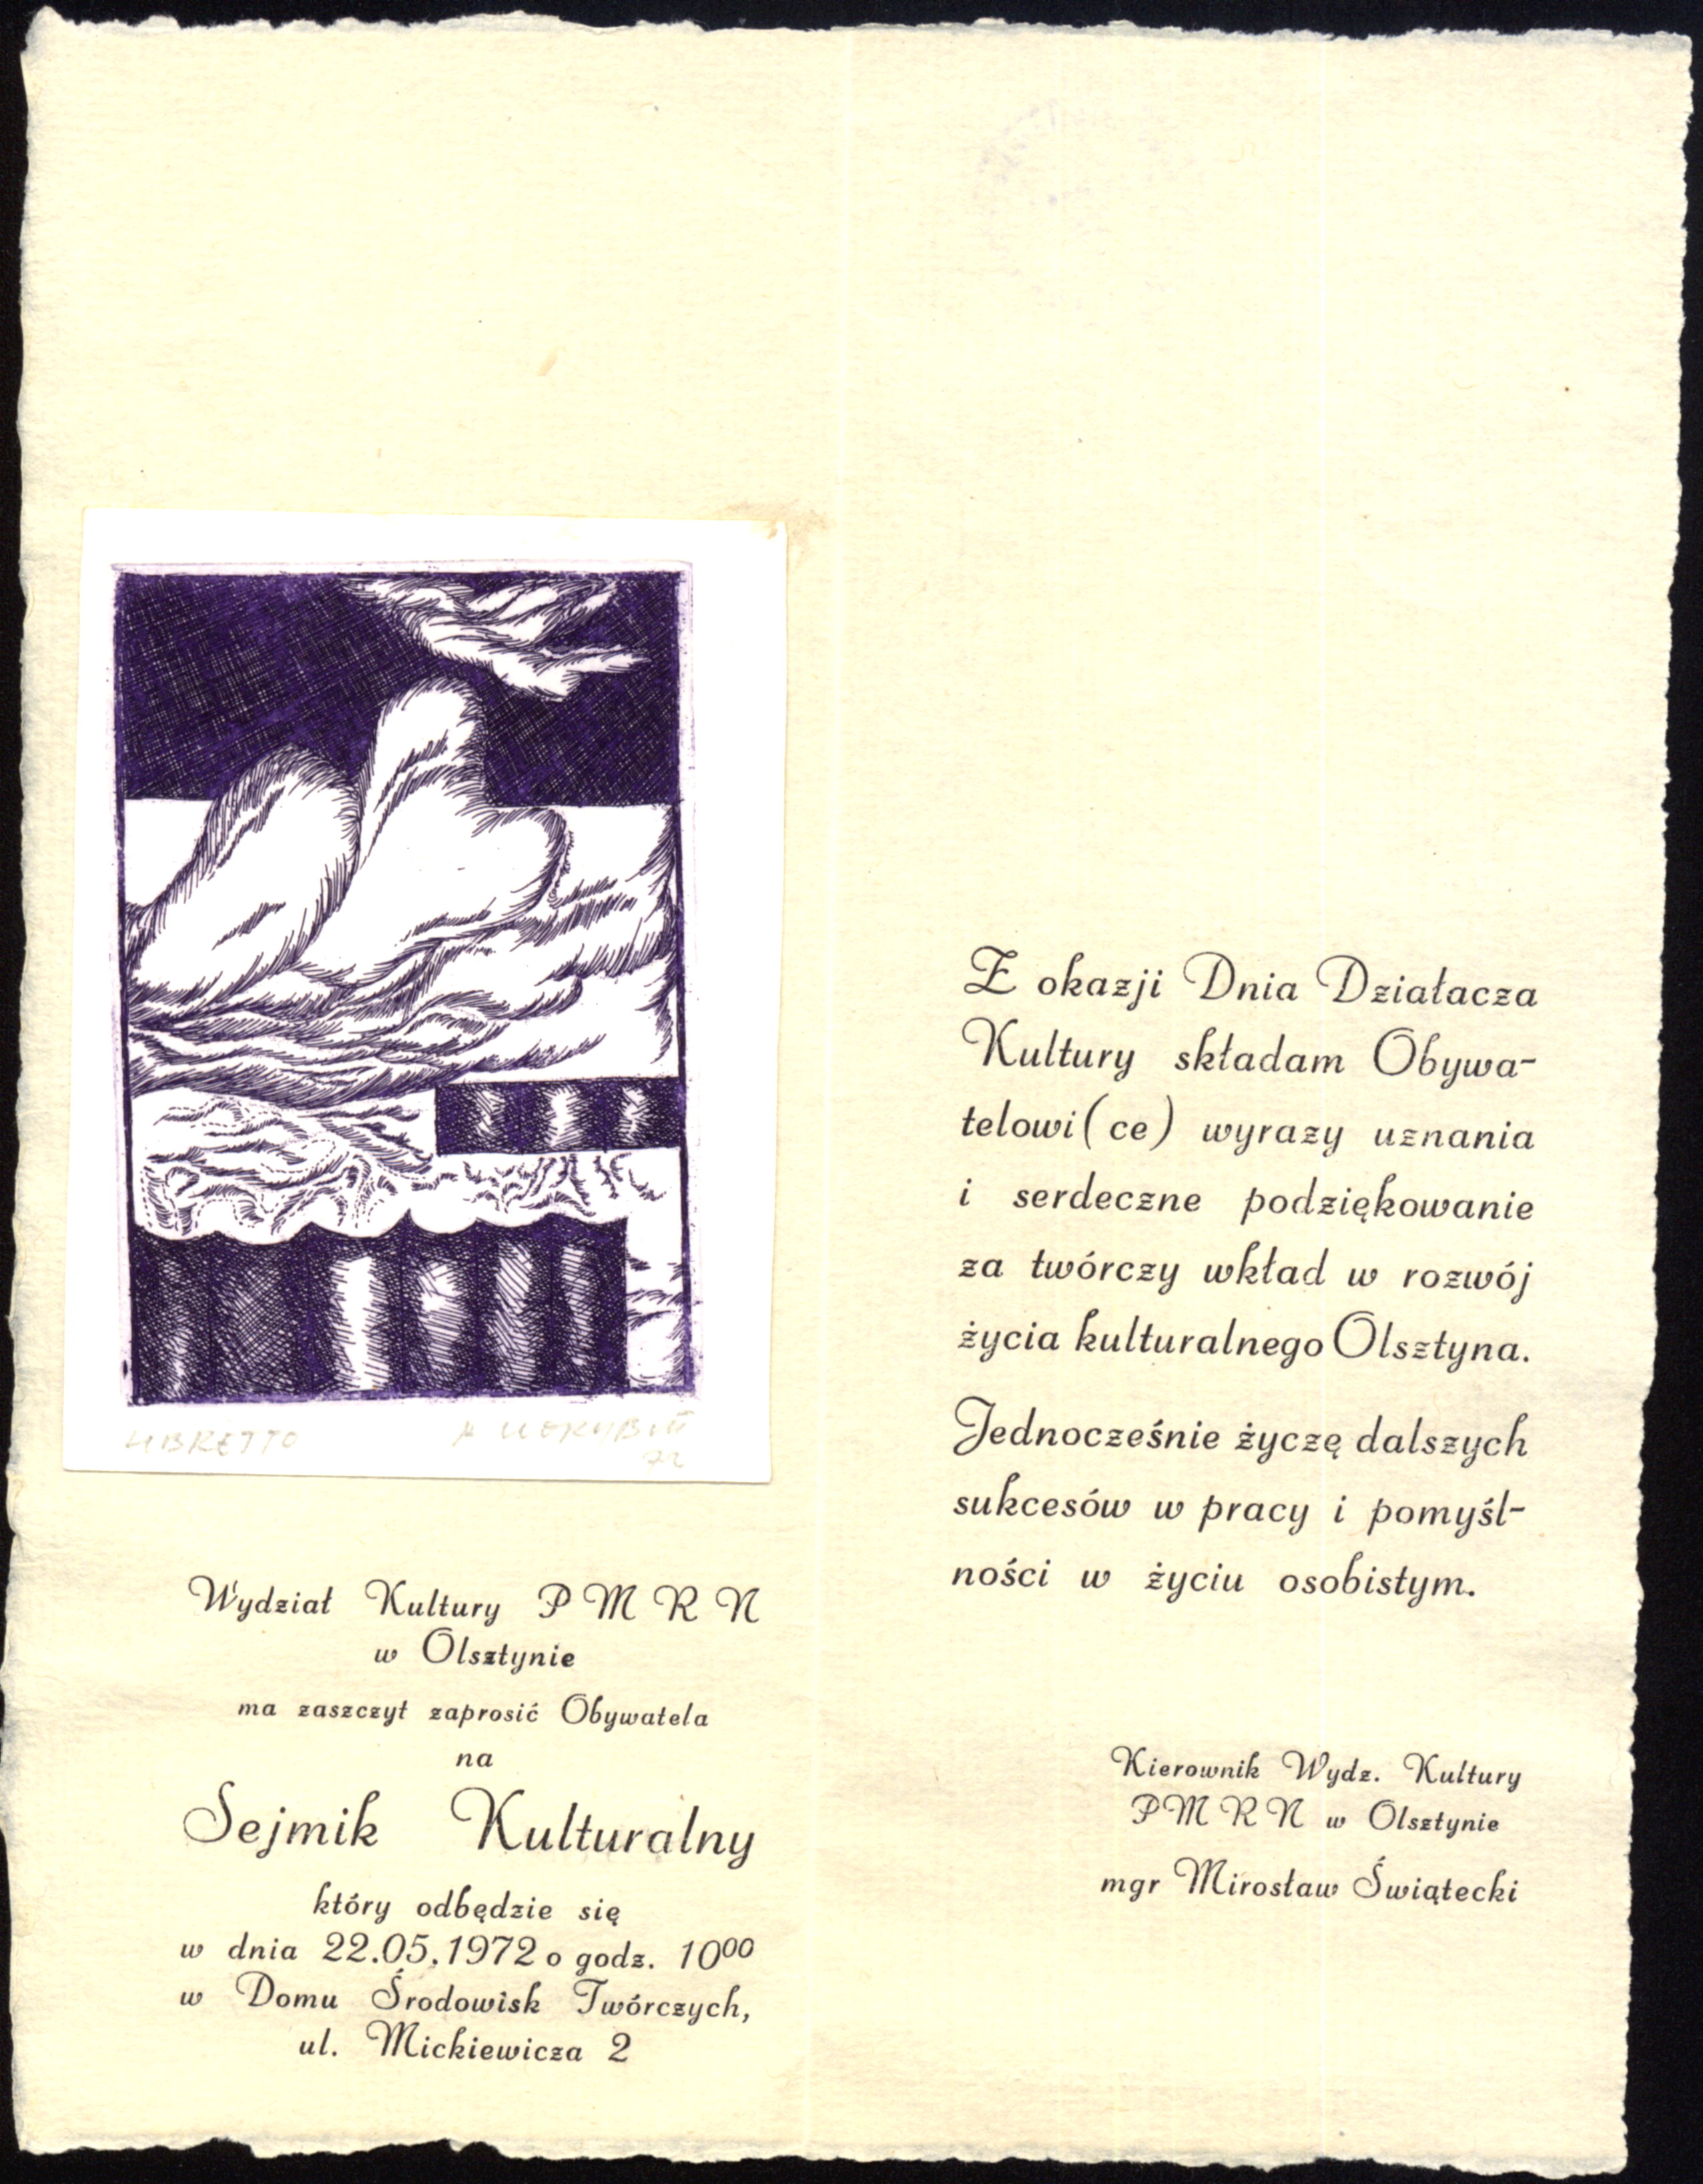 LIBRETTO
72
Wydział Kultury P M R N
w Olsztynie
ma zaszczyt zaprosić Obywatela
na
Sejmik Kulturalny
który odbędzie się
w dnia 22.05.1972 o godz. 10⁰⁰
w Domu Środowisk Twórczych,
ul. Mickiewicza 2
Z okazji Dnia Działacza
Kultury składam Obywa-
telowi(ce) wyrazy uznania
i serdeczne podziękowanie
za twórczy wkład w rozwój
życia kulturalnego Olsztyna.
Jednocześnie życzę dalszych
sukcesów w pracy i pomyśl-
ności w życiu osobistym.
Kierownik Wydz. Kultury
PMRN w Olsztynie
mgr Mirosław Świątecki